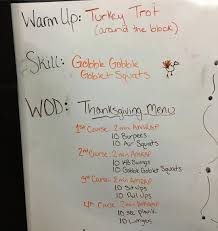 Warm Up: Turkey Trot
(around the block)
Skill: Gobble Gobble
Goblet Squats
WOD: Thanksgiving Menu
1st Course: 2 min AMRAP
10 Burpees
10 Air Squats
2nd Course: 2 min AMRAP
10 KB Swings
10 Gobble Goblet Squats
3rd Course: 2 min AMRAP
10 Sit Ups
10 Pull Ups
4th Course: 2 min AMRAP
10 Plank
10 Lunges